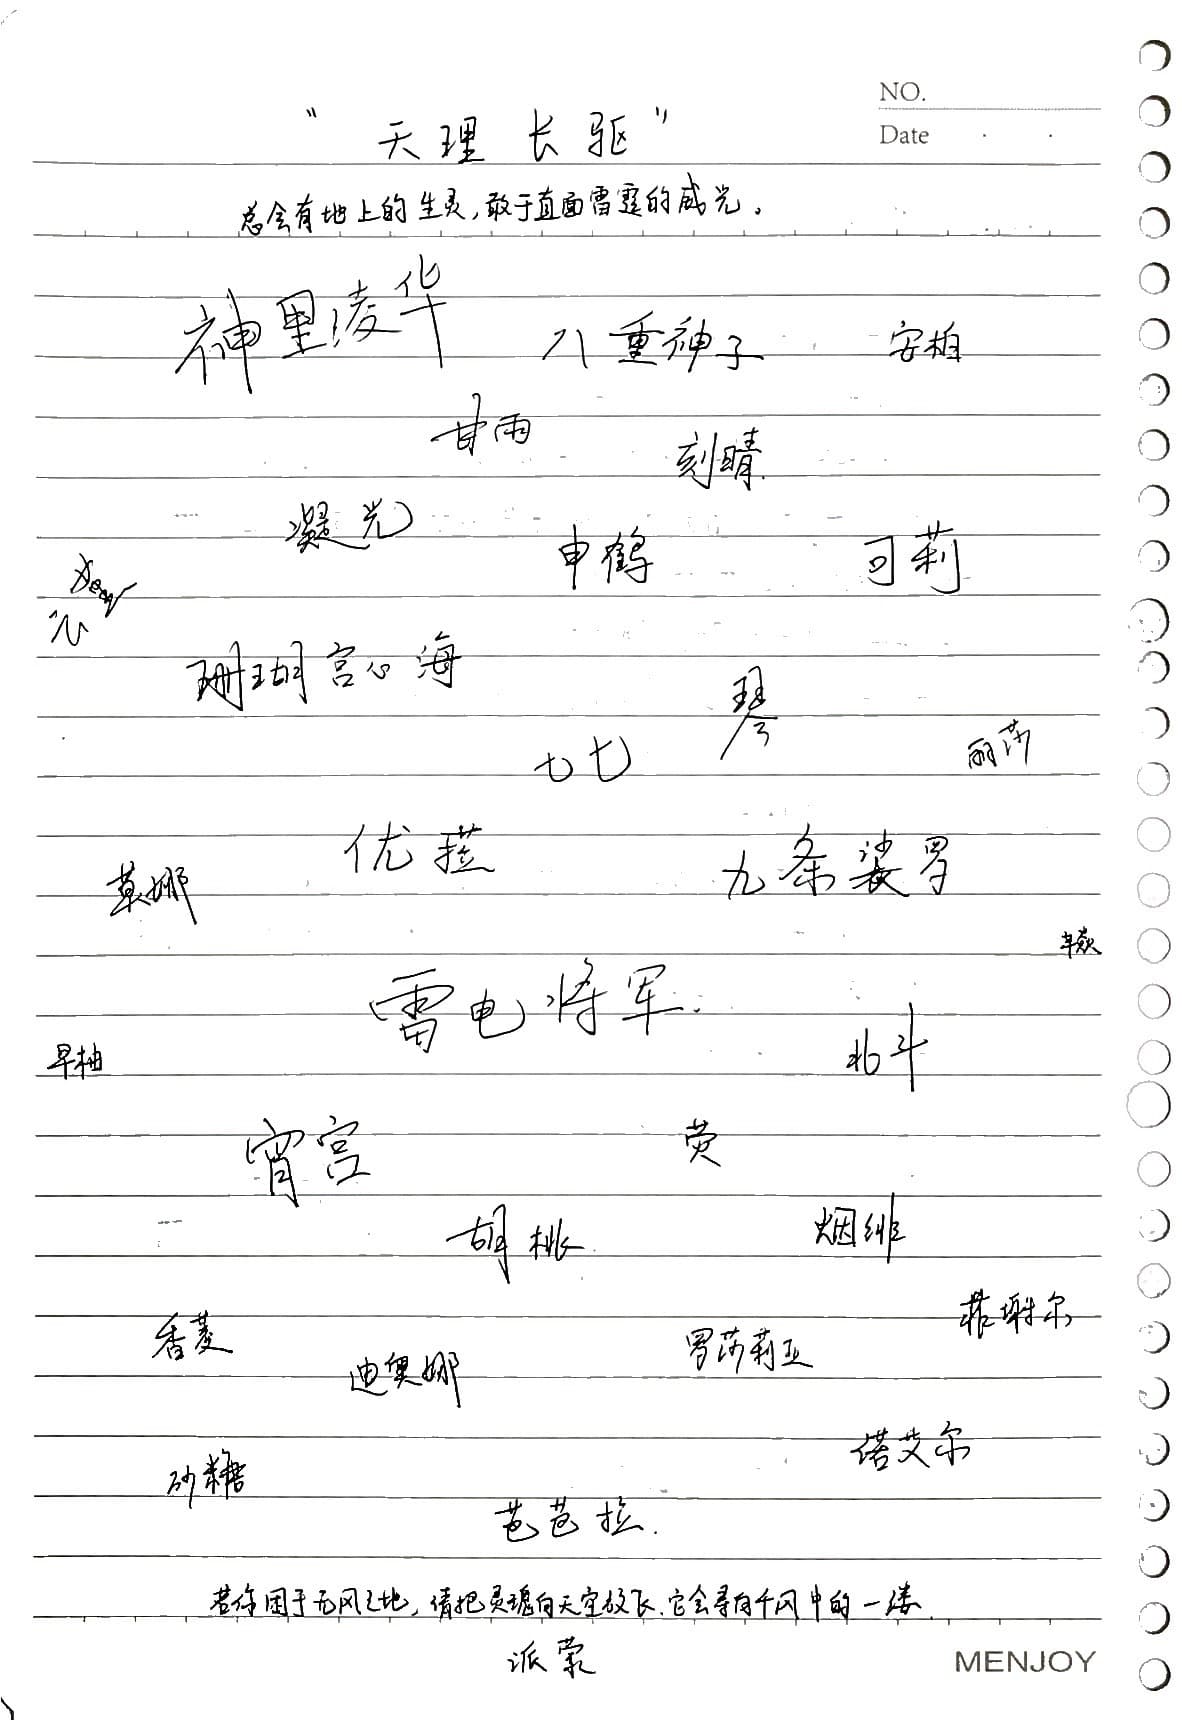 NO.
Date
“天理长驱”
总会有地上的生灵,敢于直面雷霆的威光。
神里凌华 八重神子 安柏
甘雨 刻晴
凝光 申鹤 可莉
珊瑚宫心海 琴
七七 丽莎
优菈 九条裟罗
莫娜
雷电将军
早柚 北斗
宵宫 荧
胡桃 烟绯
菲谢尔
香菱 迪奥娜 罗莎莉亚
砂糖 诺艾尔
芭芭拉
若你困于无风之地,请把灵魂向天空放飞.它会寻向千风中的一缕
派蒙
MENJOY